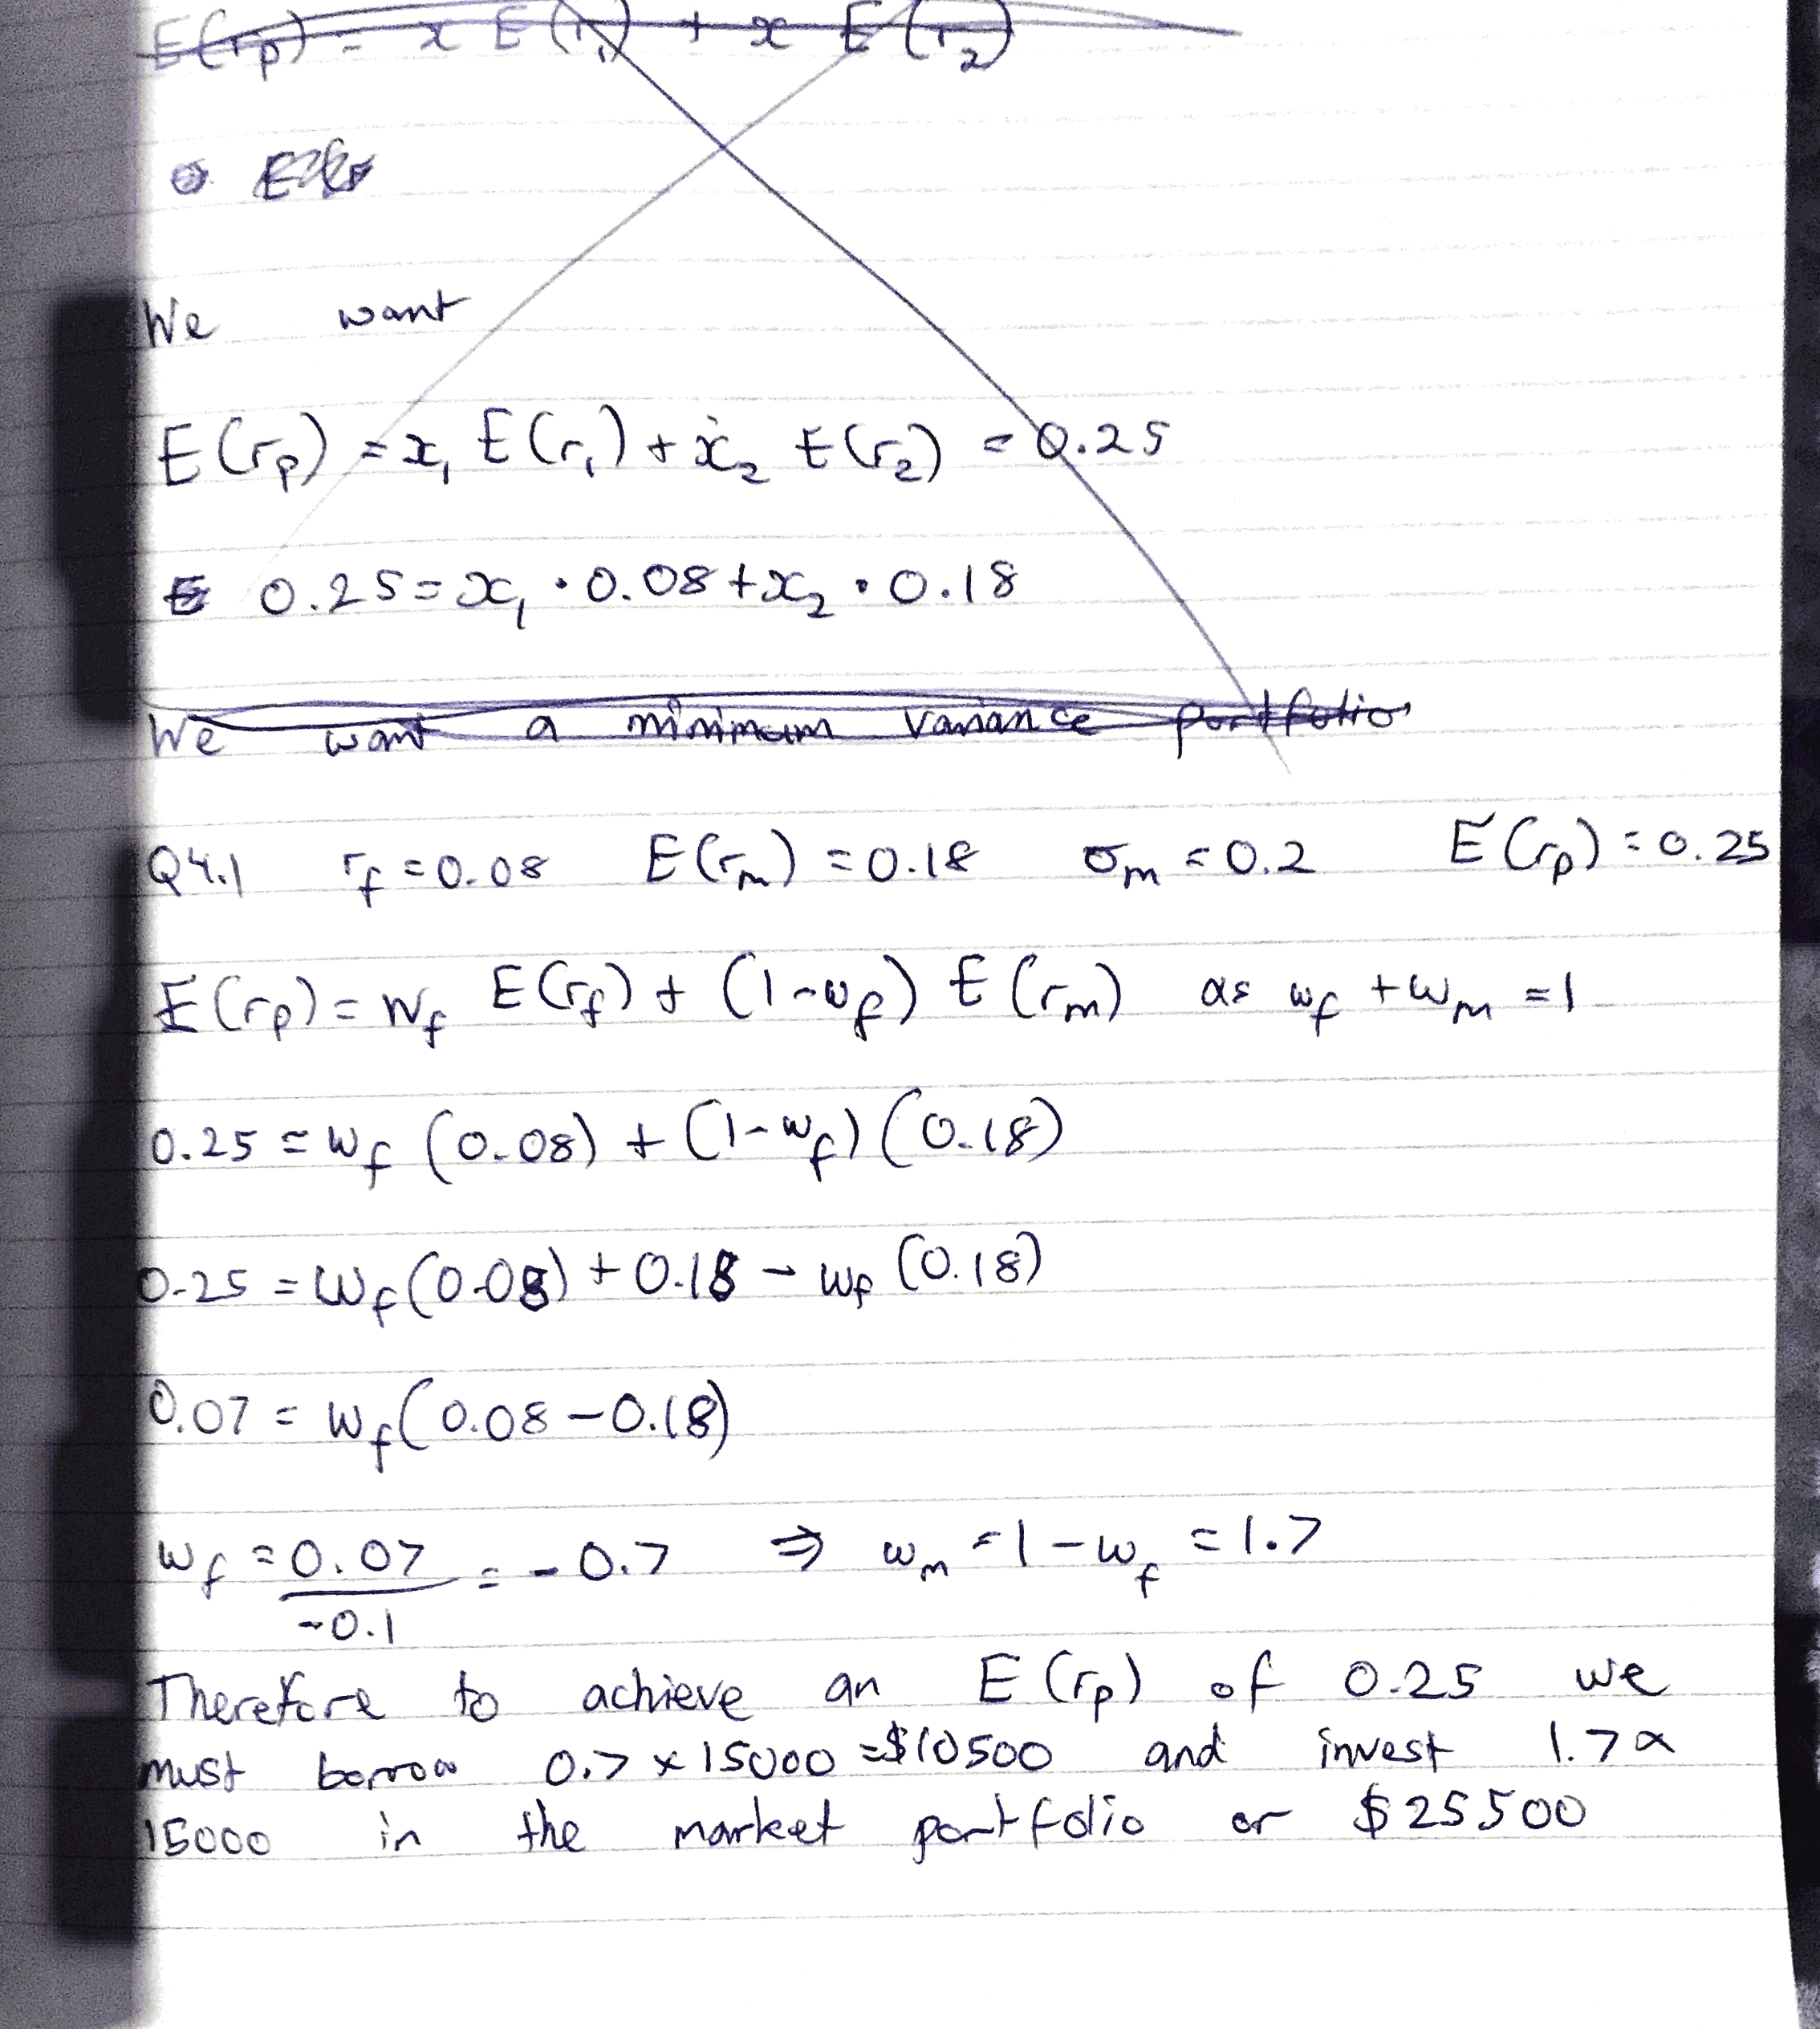 E(rp) = x E(r₁) + x E(r₂)
We want
E(rp) = x₁ E(r₁) + x₂ E(r₂) = 0.25
0.25 = x₁ · 0.08 + x₂ · 0.18
We want a minimum variance portfolio
Q4.1 rf = 0.08 E(rm) = 0.18 σm = 0.2 E(rp) = 0.25
E(rp) = wf E(rf) + (1-wf) E(rm) as wf + wm = 1
0.25 = wf (0.08) + (1-wf) (0.18)
0.25 = wf (0.08) + 0.18 - wf (0.18)
0.07 = wf (0.08 - 0.18)
wf = 0.07 / -0.1 = -0.7 ⇒ wm = 1 - wf = 1.7
Therefore to achieve an E(rp) of 0.25 we
must borrow 0.7 x 15000 = $10500 and invest 1.7 x
15000 in the market portfolio or $25500